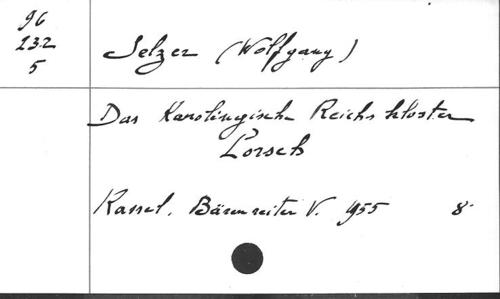 96
232
5
Selzer (Wolfgang)
Das Karolingische Reichskloster
Lorsch
Kassel. Bärenreiter V. 1955 8°